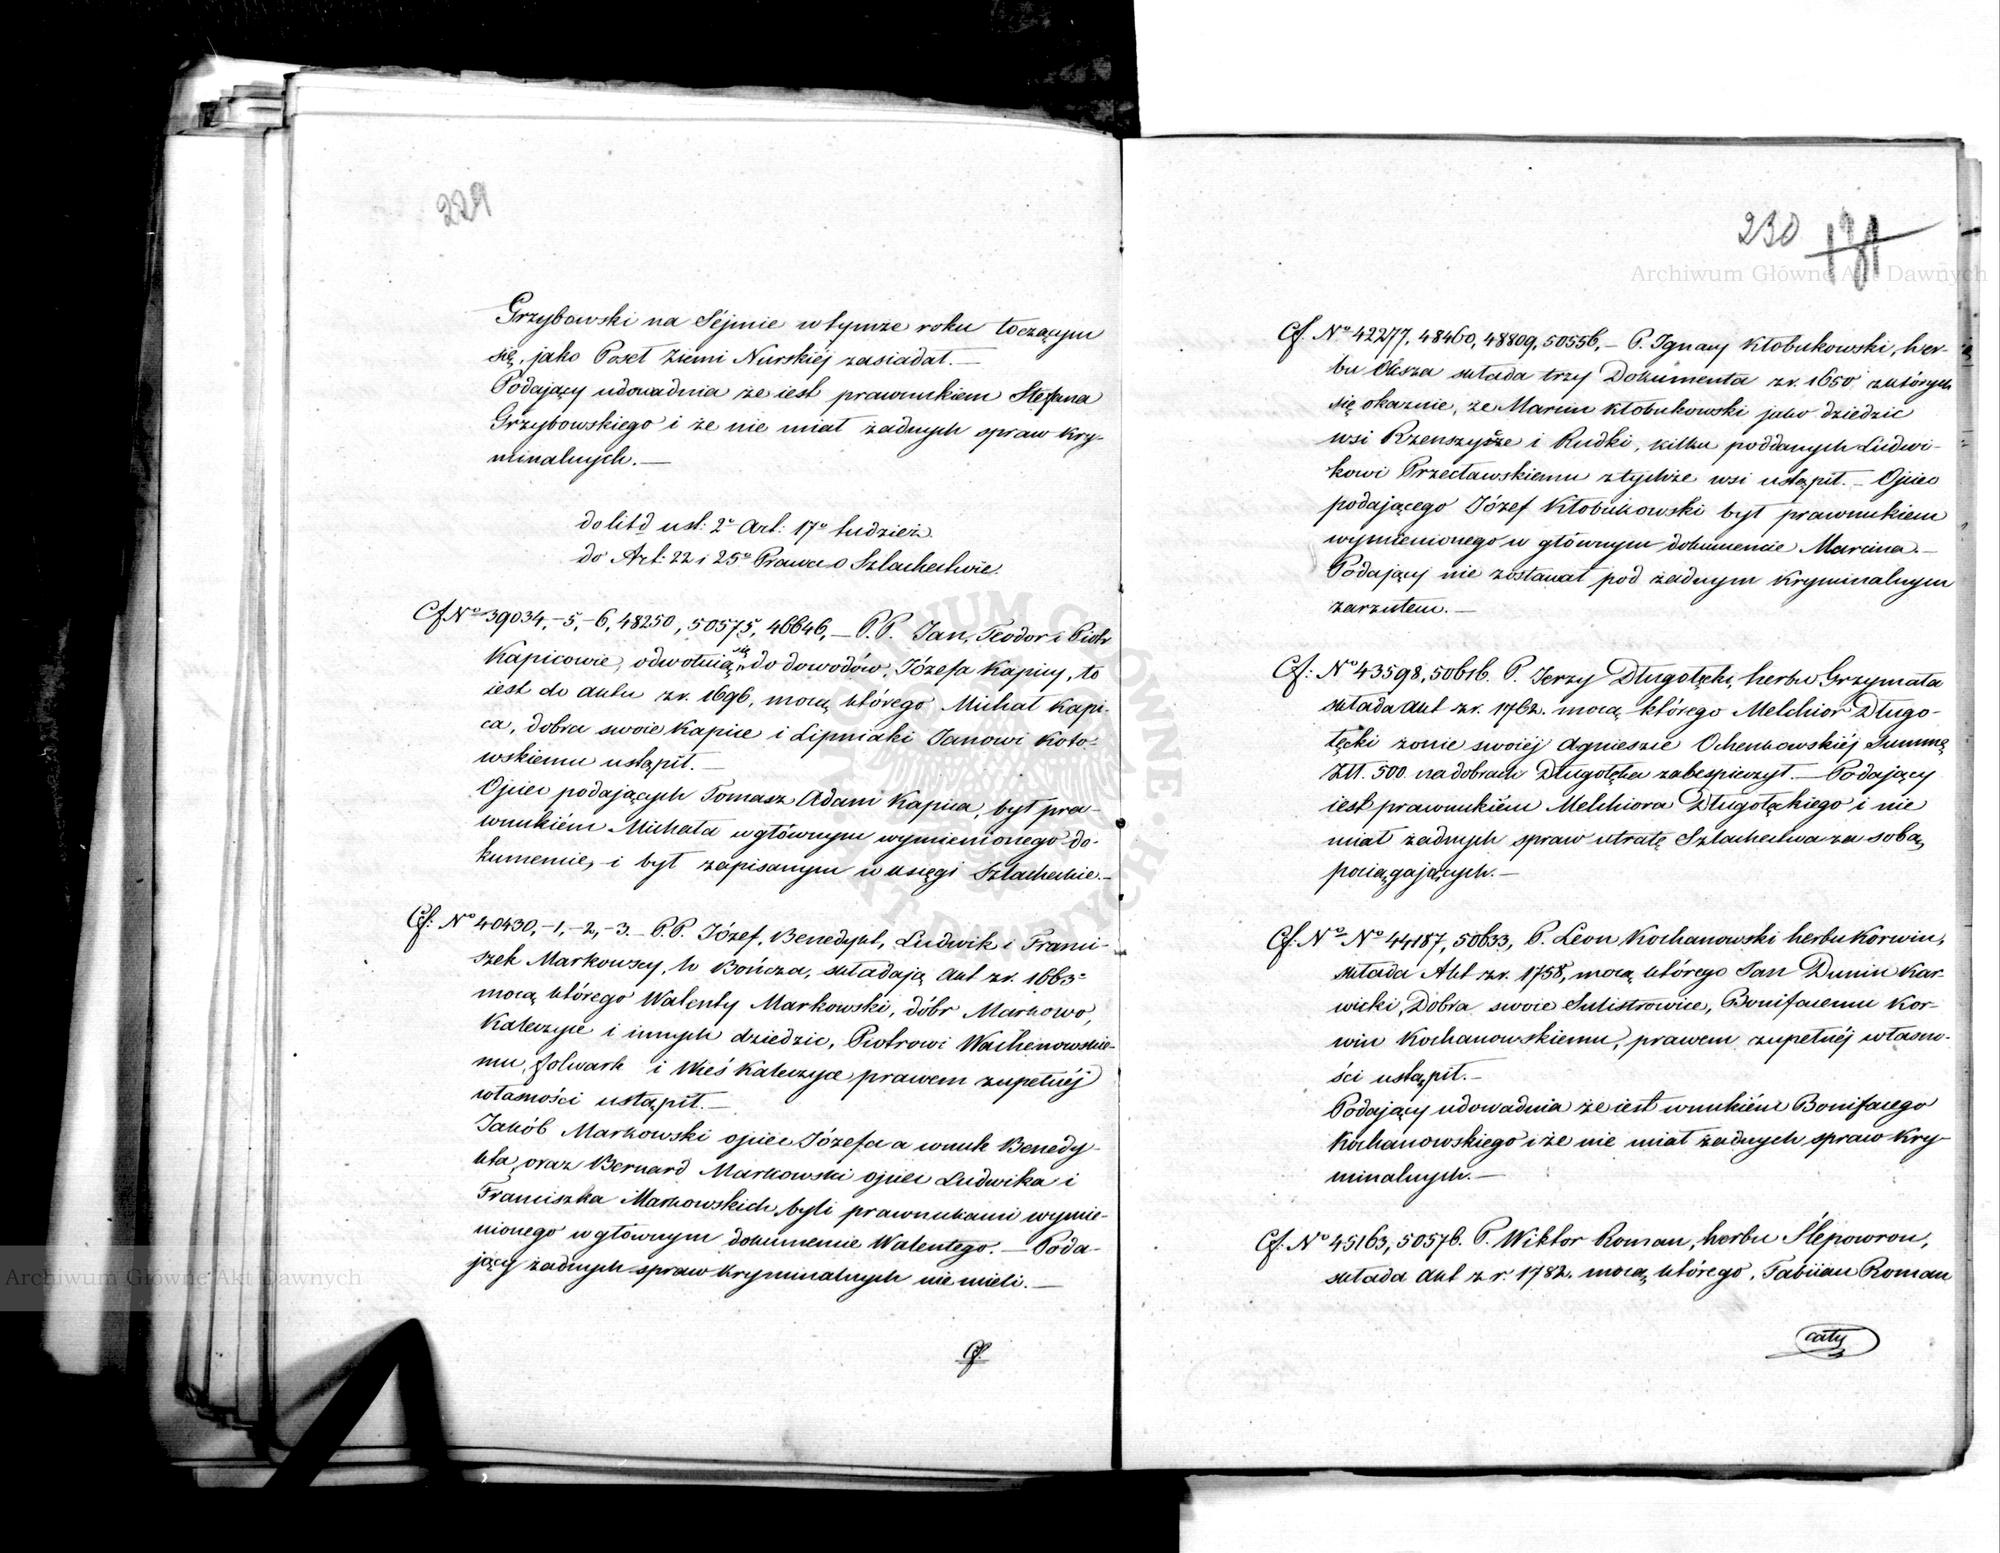 229
Grzybowski na Sejmie w tymże roku toczącym
się, jako Poseł Ziemi Nurskiéj zasiadał. —
Podający udowadnia że iest prawnukiem Stefana
Grzybowskiego i że nie miał żadnych spraw kry-
minalnych. —
do lit d ust: 2º Art: 17º tudzież
do Art: 22 i 25º Prawa o Szlachectwie.
Cf Nº 39034, -5, -6, 48250, 50575, 46646, — P.P. Jan, Teodor i Piotr
Kapicowie, odwołuią się do dowodów, Józefa Kapicy, to
iest do aktu z r. 1696, mocą którego Michał Kapi-
ca, dobra swoie Kapice i Lipniaki Janowi Koto-
wskiemu ustąpił. —
Ojciec podających Tomasz Adam Kapica, był pra-
wnukiém Michała w głównym wymienionego do-
kumencie, i był zapisanym w księgi Szlacheckie. —
Cf: Nº 40430, -1, -2, -3. — P.P. Józef, Benedykt, Ludwik i Franci-
szek Markowscy, h. Bończa, składają akt z r. 1663
mocą którego Walenty Markowski, dóbr Markowo,
Kaleczyce i innych dziedzic, Piotrowi Wachnowskie-
mu, folwark i Wieś Kaleczyce prawem zupełnéj
własności ustąpił. —
Jakób Markowski ojciec Józefa a wnuk Benedy-
kta, oraz Bernard Markowski ojciec Ludwika i
Franciszka Markowskich, byli prawnukami wymie-
nionego w głównym dokumencie Walentego. — Poda-
jący żadnych spraw kryminalnych nie mieli. —
Cf.
230
Archiwum Główne Akt Dawnych
Cf. Nº 42277, 48460, 48809, 50556, — P. Ignacy Kłobukowski, her-
bu Oksza składa trzy Dokumenta z r. 1650 z których
się okazuie, że Marcin Kłobukowski jako dziedzic
wsi Rzenszysze i Rudki, kilku poddanych Ludwi-
kowi Przecławskiemu z tychże wsi ustąpił. — Ojciec
podającego Józef Kłobukowski był prawnukiem
wymienionego w głównym dokumencie Marcina. —
Podający nie zostawał pod żadnym kryminalnym
zarzutem. —
Cf: Nº 43598, 50616. P. Jerzy Długołęcki, herbu Grzymała
składa akt z r. 1762. mocą którego Melchior Długo-
łęcki żonie swoiéj Agnieszce Ochenkowskiéj Summę
Złł. 500 na dobrach Długołęka zabespieczył. — Podający
iest prawnukiém Melchiora Długołęckiego i nie
miał żadnych spraw utratę Szlachectwa za sobą
pociągających. —
Cf. Nº Nº 44187, 50633, P. Leon Kochanowski herbu Korwin,
składa Akt z r. 1758, mocą którego Jan Dunin Kar-
wicki, Dobra swoie Sulistrowice, Bonifacemu Kor-
win Kochanowskiemu, prawem zupełnéj własno-
ści ustąpił. —
Podający udowadnia że iest wnukiém Bonifacego
Kochanowskiego i że nie miał żadnych spraw kry-
minalnych. —
Cf. Nº 45163, 50576. P. Wiktor Roman, herbu Ślepowron,
składa akt z r. 1782. mocą którego, Fabiian Roman
cały
Archiwum Główne Akt Dawnych